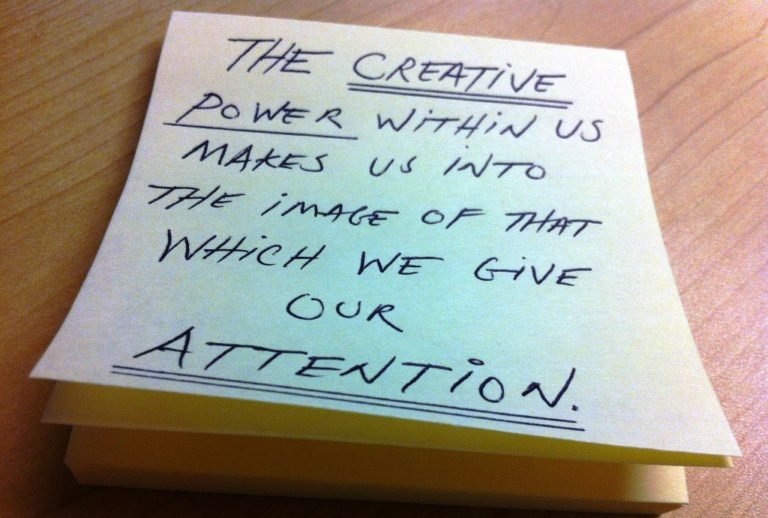 THE CREATIVE
POWER WITHIN US
MAKES US INTO
THE IMAGE OF THAT
WHICH WE GIVE
OUR
ATTENTION.